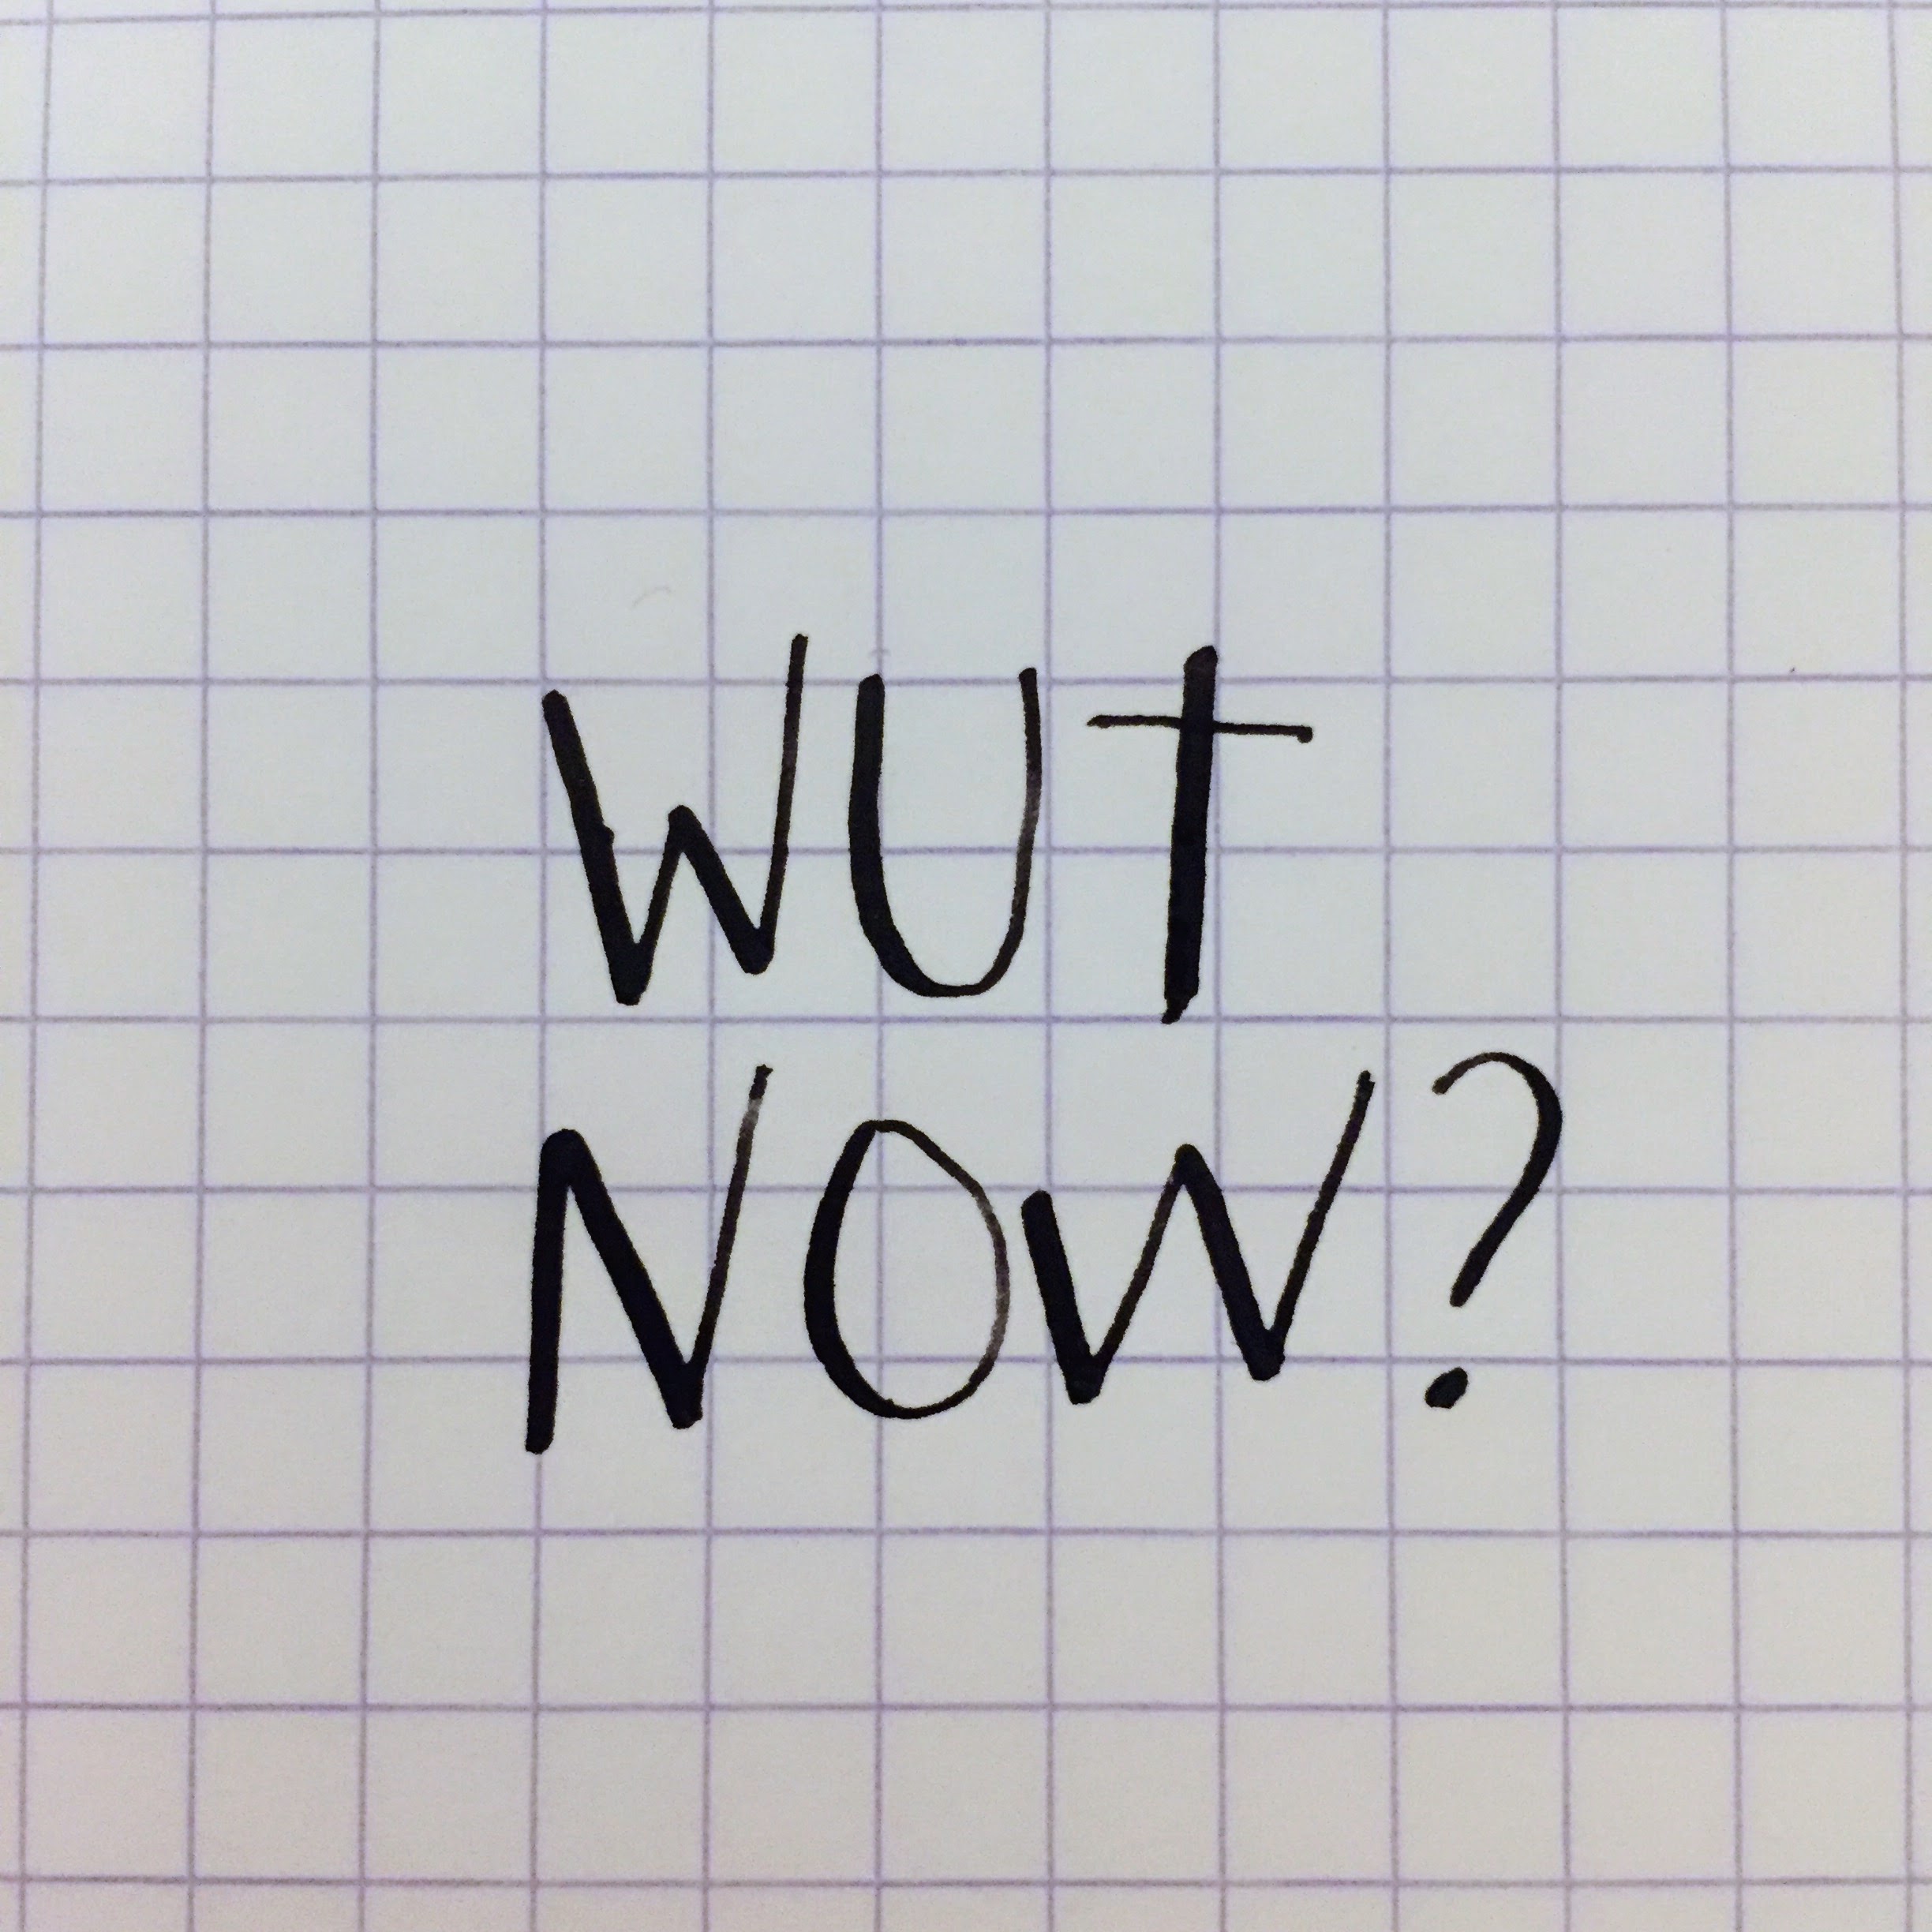 WUT
NOW?